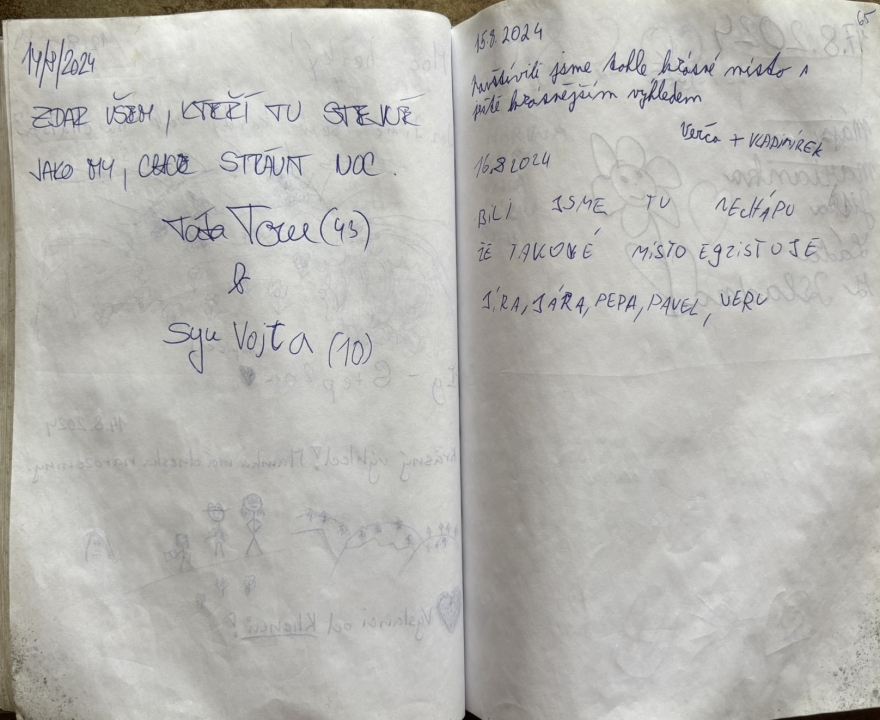 14/8/2024
ZDAR VŠEM, KTEŘÍ TU STEJNĚ
JAKO MY, CHCE STRÁVIT NOC.
Táta Tom (43)
&
Syn Vojta (10)
14.8.2024
krásný výhled! Mamka má dneska narozeniny.
Vyslanci od Klienci?
65
15.8.2024
Navštívili jsme tohle krásné místo s
ještě krásnějším výhledem
Verča + VLADIMÍREK
16.8 2024
BILI JSME TU NECHÁPU
ŽE TAKOVÉ MÍSTO EGZISTUJE
JÍRA, JÁRA, PEPA, PAVEL, VERU
17.8.2024